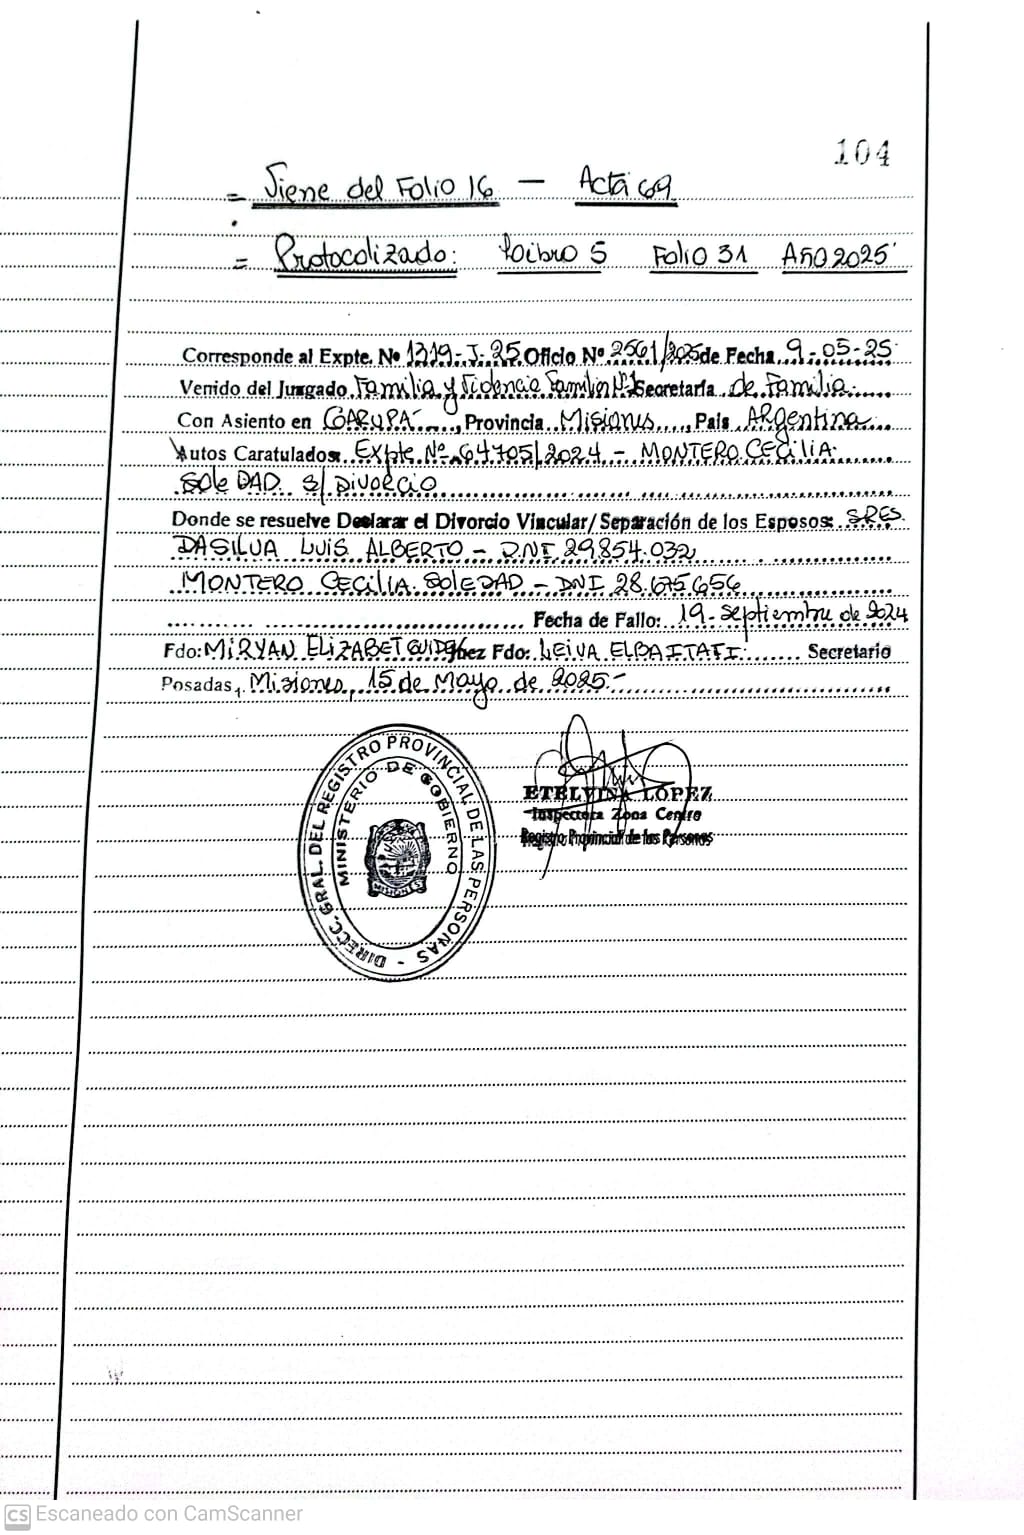 104
= Viene del Folio 16 — Acta 69
= Protocolizado: Libro 5 Folio 31 Año 2025
Corresponde al Expte. Nº 1319-J-25 Oficio Nº 2561/2025 de Fecha 9-05-25
Venido del Juzgado Familia y Violencia Familiar Nº1 Secretaría de Familia
Con Asiento en GARUPA, Provincia Misiones, Pais ARgentina
Autos Caratulados: Expte. Nº 64705/2024 - MONTERO CECILIA
SOLEDAD S/ DIVORCIO
Donde se resuelve Declarar el Divorcio Vincular/Separación de los Esposos: SRES.
DASILVA LUIS ALBERTO - DNI 29.854.032
MONTERO CECILIA SOLEDAD - DNI 28.675.656
Fecha de Fallo: 19-septiembre de 2024
Fdo: MIRYAN ELIZABET Juez Fdo: LEIVA ELBA ITATI Secretario
Posadas, Misiones, 15 de Mayo de 2025.-
DIRECC. GRAL. DEL REGISTRO PROVINCIAL DE LAS PERSONAS -
MINISTERIO DE GOBIERNO
MISIONES
ETELVINA LOPEZ
Inspectora Zona Centro
Registro Provincial de las Personas
CS Escaneado con CamScanner